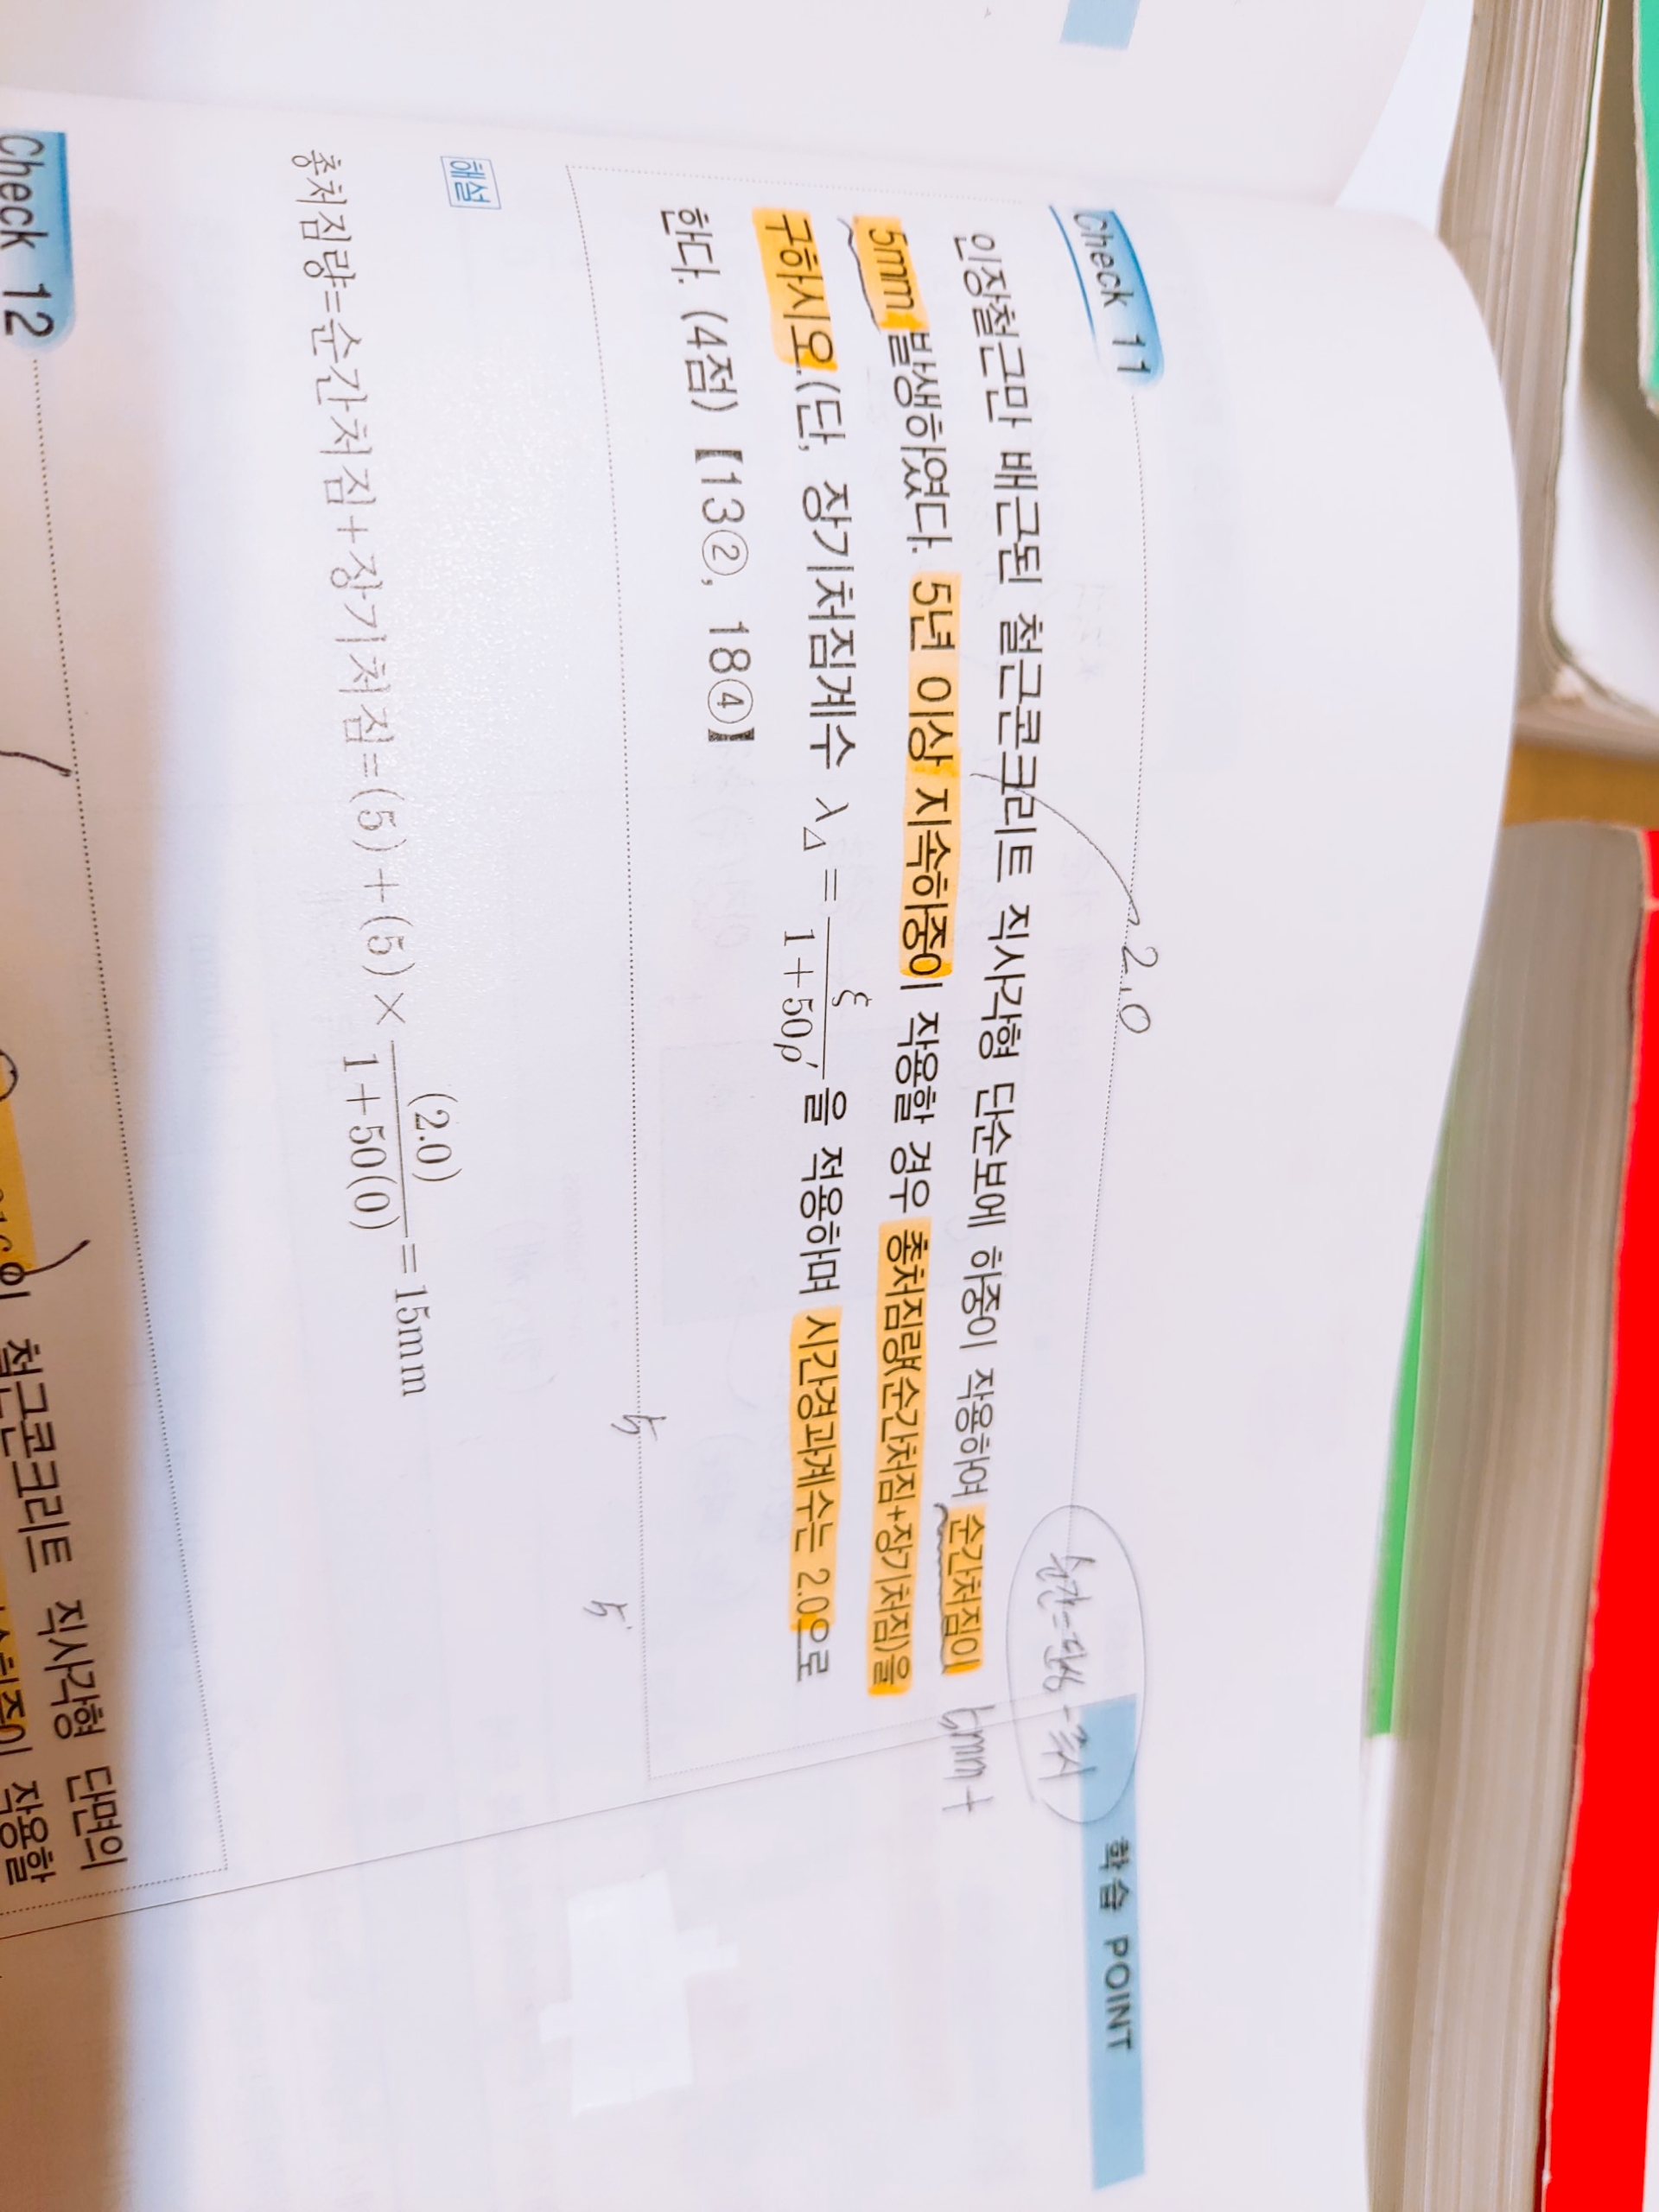 Check 11
2.0
순간=탄성=즉시
학습 POINT
인장철근만 배근된 철근콘크리트 직사각형 단순보에 하중이 작용하여 순간처짐이
5mm 발생하였다. 5년 이상 지속하중이 작용할 경우 총처짐량(순간처짐+장기처짐)을
구하시오.(단, 장기처짐계수 λ_Δ = ξ / (1+50ρ') 을 적용하며 시간경과계수는 2.0으로
한다. (4점) 【13②, 18④】
5mm +
5
5
해설
총처짐량=순간처짐+장기처짐=(5)+(5)× (2.0) / (1+50(0)) =15mm
Check 12
철근콘크리트 직사각형 단면의
작용할